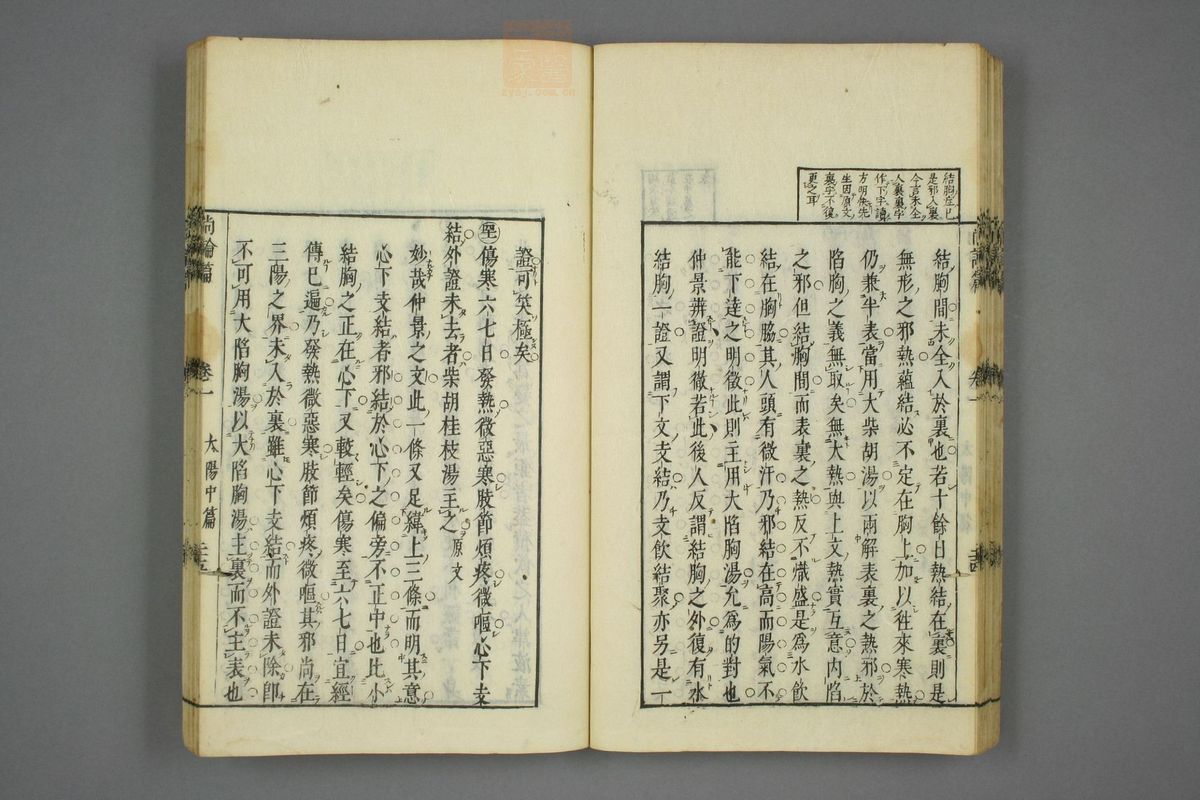 結胸症已
是邪入裏
今言未全
入裏裏字
作下字讀
方明快先
生因原文
裏字不復
更之耳
結胸間未全入於裏也若十餘日熱結在裏則是
無形之邪熱蘊結必不定在胸上加以徃來寒熱
仍兼半表當用大柴胡湯以兩解表裏之熱邪於
陷胸之義無取矣無大熱與上文熱實互意內陷
之邪但結胸間而表裏之熱反不熾盛是為水飲
結在胸脇其人頭有微汗乃邪結在高而陽氣不
能下達之明徵此則主用大陷胸湯允為的對也
仲景辨證明徹若此後人反謂結胸之外復有水
結胸一證又謂下文支結乃支飲結聚亦另是一
證可笑極矣
傷寒六七日發熱微惡寒肢節煩疼微嘔心下支
結外證未去者柴胡桂枝湯主之 原文
妙哉仲景之文此一條又足緯上三條而明其意
心下支結者邪結於心下之偏旁不正中也比小
結胸之正在心下又較輕矣傷寒至六七日宜經
傳已遍乃發熱微惡寒肢節煩疼微嘔其邪尚在
三陽之界未入於裏雖心下支結而外證未除即
不可用大陷胸湯以大陷胸湯主裏而不主表也
尚論篇 卷一 太陽中篇
zysj.com.cn